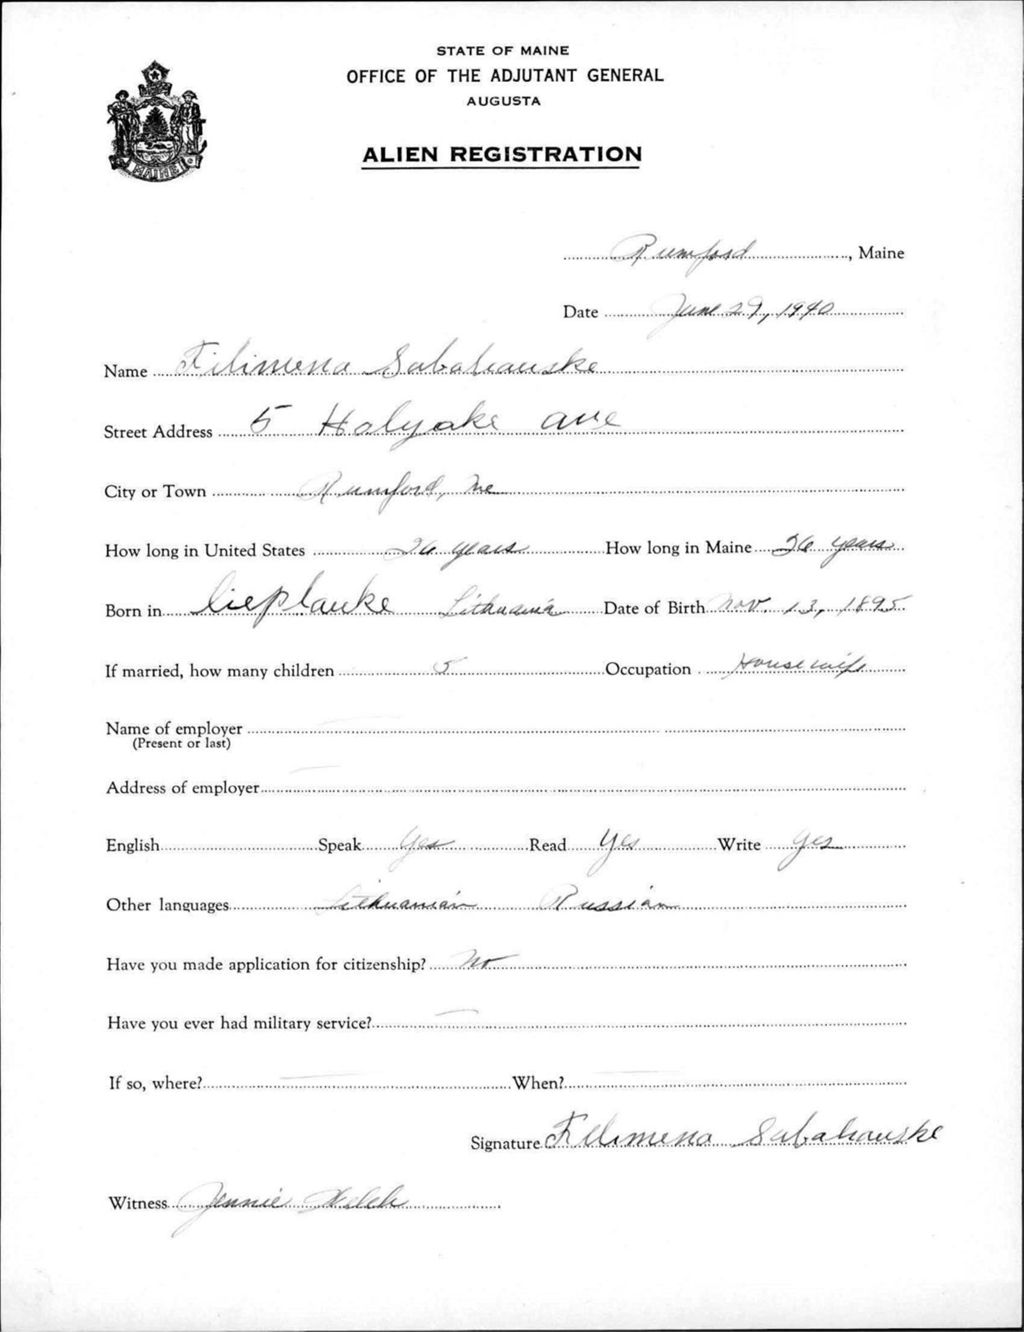 STATE OF MAINE
OFFICE OF THE ADJUTANT GENERAL
AUGUSTA
ALIEN REGISTRATION
MAINE
Rumford, Maine
Date June 29, 1940
Name Filimena Sabahauske
Street Address 5 Halyake ave
City or Town Rumford, Me
How long in United States 26 years How long in Maine 26 years
Born in Lithuania Date of Birth Nov. 13, 1895
If married, how many children 5 Occupation Housewife
Name of employer
(Present or last)
Address of employer
English Speak Yes Read Yes Write Yes
Other languages Lithuanian Russian
Have you made application for citizenship? No
Have you ever had military service? —
If so, where? — When? —
Signature Filimena Sabahauske
Witness Jennie Welch